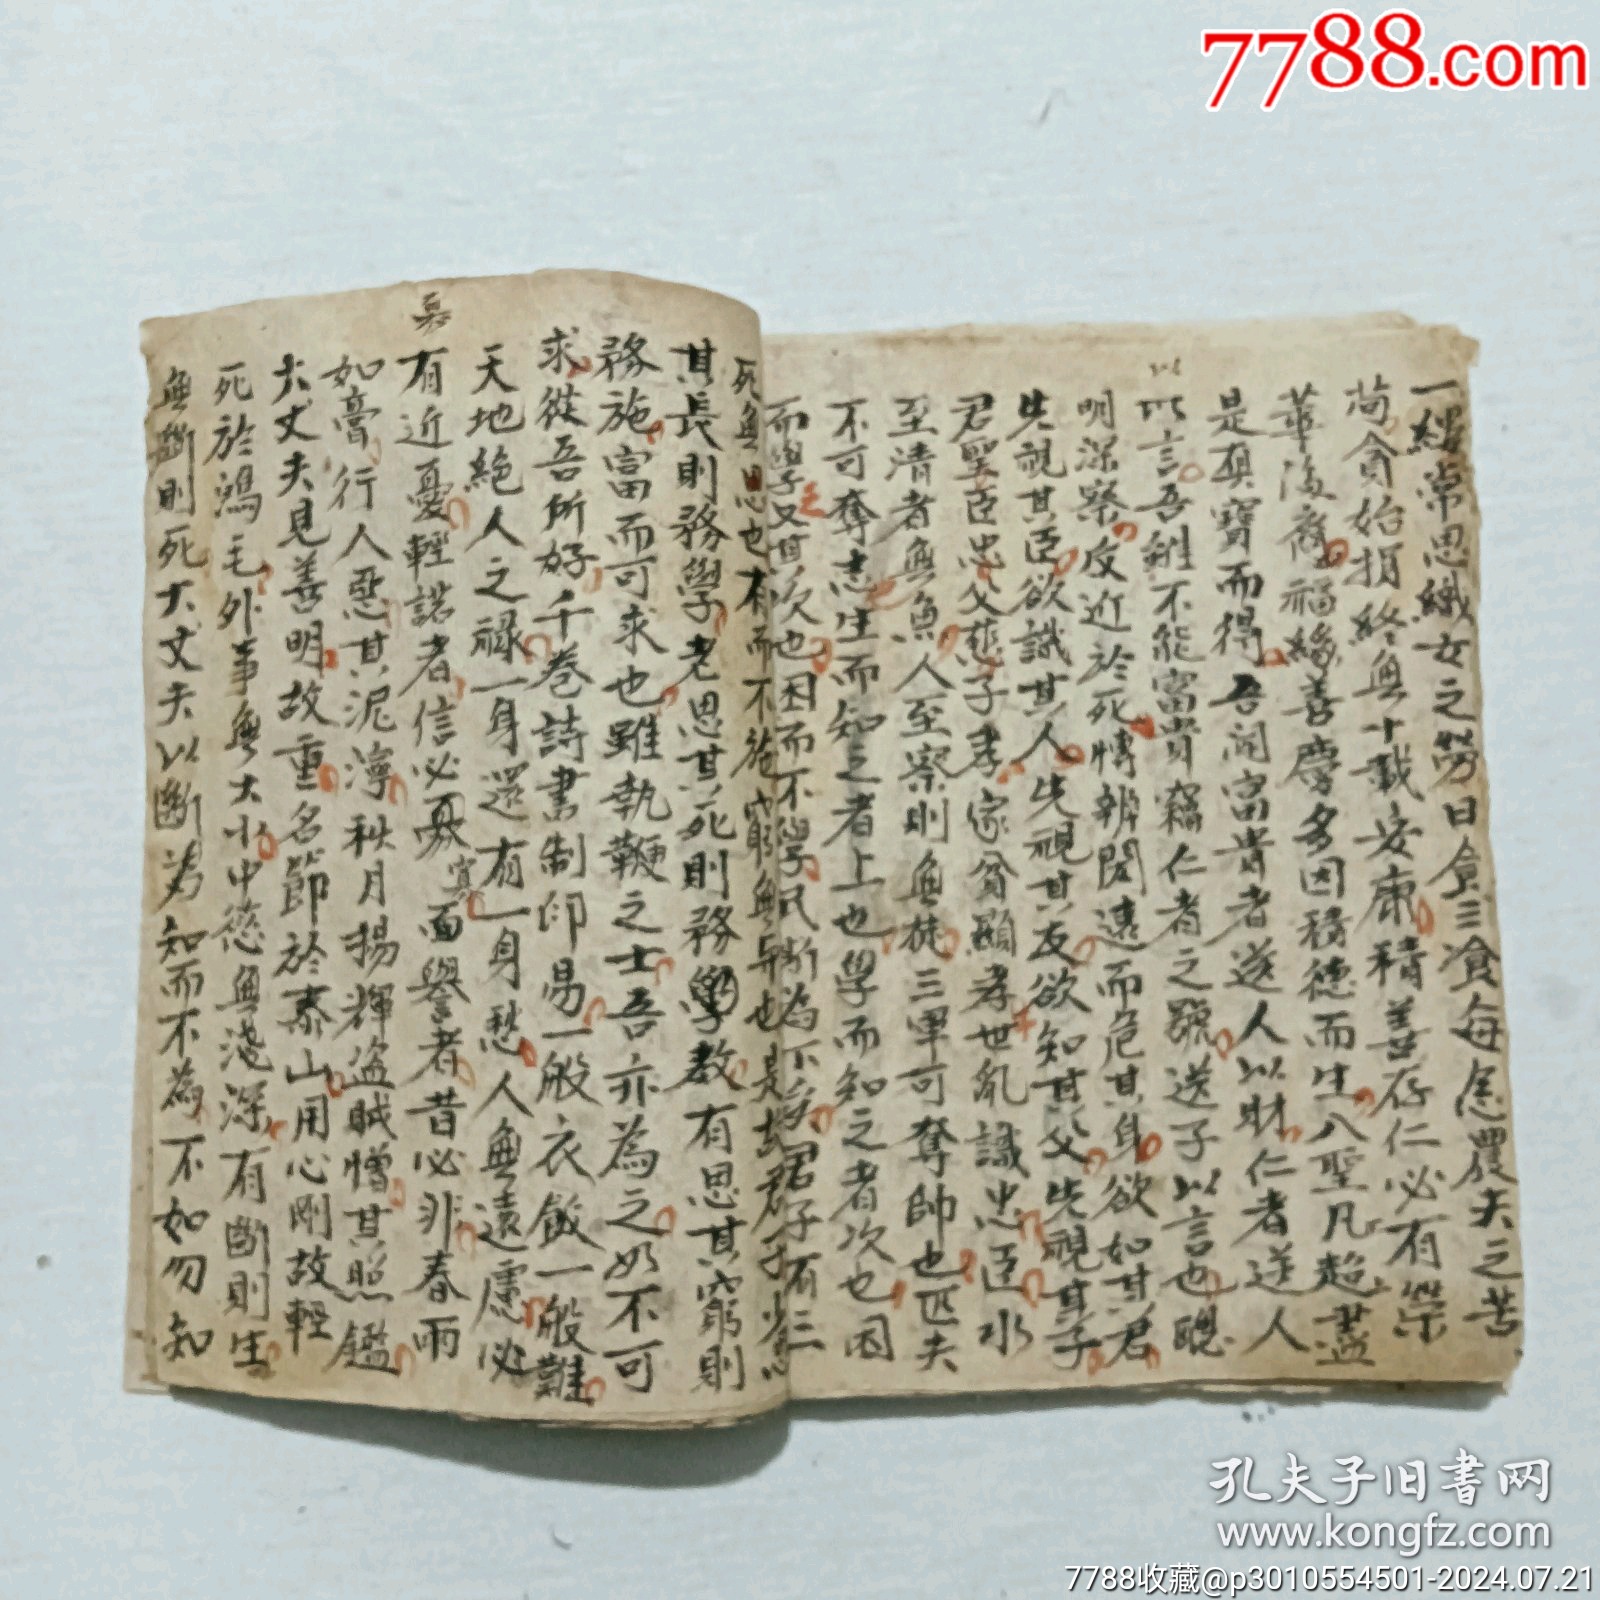 7788.com
一縷常思織女之勞日食三飡每念農夫之苦
苟貪始損終無十載安康積善存仁必有榮
華後裔福緣善慶多因積德而生入聖凡超盡
是真實而得吾聞富貴者送人以財仁者送人
以言吾雖不能富貴竊仁者之號送子以言也聰
明深察反近於死博辨閎遠而危其身欲知其君
先視其臣欲識其人先視其友欲知其父先視其子
君聖臣忠父慈子孝家貧顯孝世亂識忠臣水
至清者無魚人至察則無徒三軍可奪帥也匹夫
不可奪志生而知之者上也學而知之者次也困
而學之又其次也困而不學民斯為下矣君子有三
死無思也有而不施窮無與也是故君子少思
其長則務學老思其死則務教有思其窮則
務施富而可求也雖執鞭之士吾亦為之如不可
求從吾所好千卷詩書制卯易一般衣飯一般難
天地絕人之祿一身還有一身愁人無遠慮必
有近憂輕諾者信必寡面譽者昔必非春雨
如膏行人惡其泥濘秋月揚輝盜賊憎其照鑑
大丈夫見善明故重名節於泰山用心剛故輕
死於鴻毛外事無大小中慈無淺深有斷則生
無斷則死大丈夫以斷為知而不為不如勿知
孔夫子旧书网
www.kongfz.com
7788收藏@p3010554501-2024.07.21